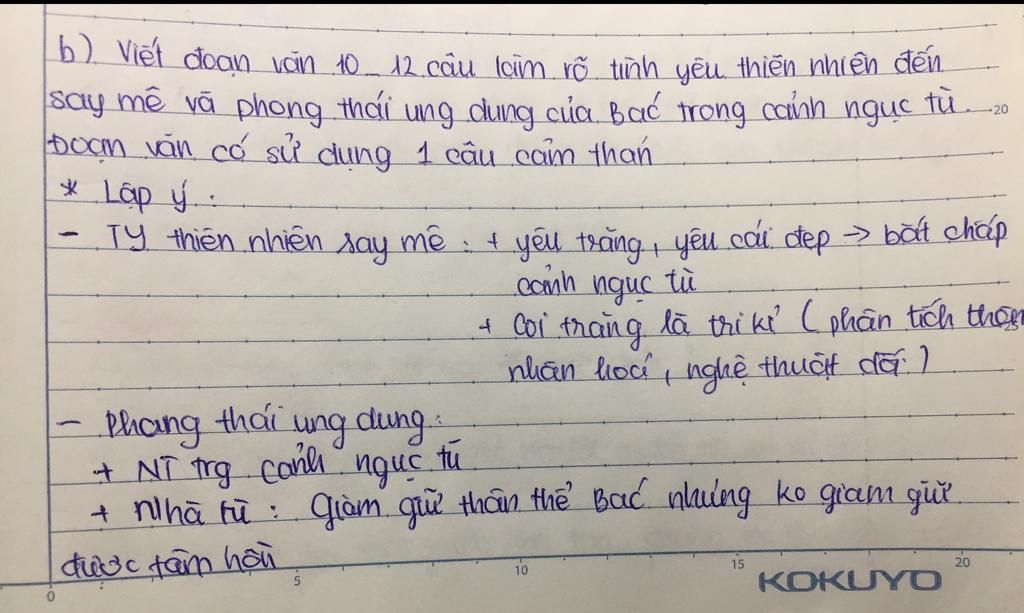 b) Viết đoạn văn 10 - 12 câu làm rõ tình yêu thiên nhiên đến
say mê và phong thái ung dung của Bác trong cảnh ngục tù
20
Đoạn văn có sử dụng 1 câu cảm thán
* Lập ý :
- TY thiên nhiên say mê : + yêu trăng, yêu cái đẹp → bất chấp
cảnh ngục tù
+ Coi trăng là tri kỉ ( phân tích
nhân hoá, nghệ thuật đối )
- Phong thái ung dung :
+ NT trg cảnh ngục tù
+ Nhà tù : Giam giữ thân thể Bác nhưng ko giam giữ
được tâm hồn
0 5 10 15 20
KOKUYO